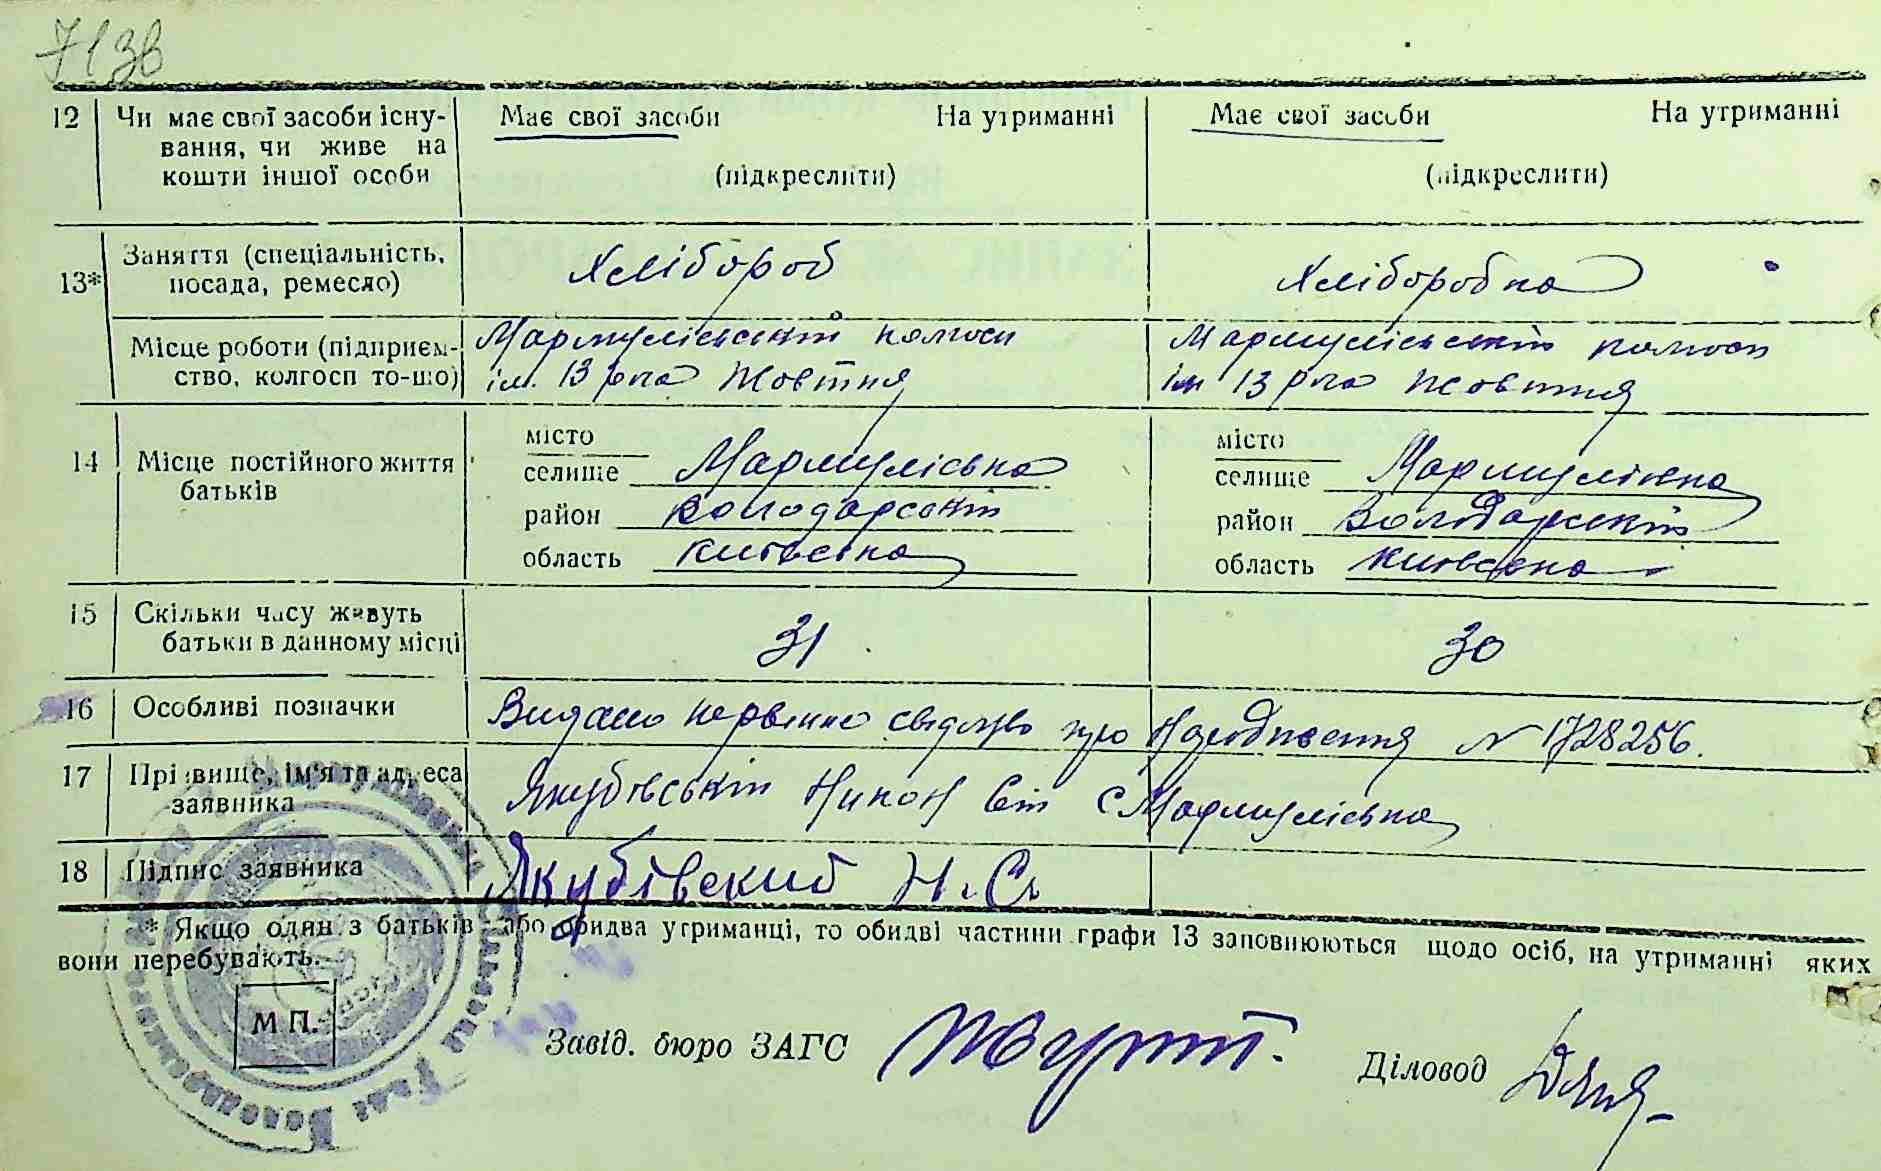 713в
12 Чи має свої засоби існу- Має свої засоби На утриманні Має свої засоби На утриманні
вання, чи живе на
кошти іншої особи (підкреслити) (підкреслити)
13* Заняття (спеціальність, Хлібороб Хліборобка
посада, ремесло)
Місце роботи (підприєм- Мармуліївський колгосп Мармуліївський колгосп
ство, колгосп то-що) ім. 13 річча Жовтня ім 13 річча Жовтня
14 Місце постійного життя місто місто
батьків селище Мармуліівка селище Мармуліівка
район Володарський район Володарський
область Київська область Київська
15 Скільки часу живуть 31 30
батьки в данному місці
16 Особливі позначки Видано первинне свідоцтво про Народження N 1728256.
17 Прізвище, ім'я та адреса Якубівський Никон Віт С Мармуліівка
заявника
18 Підпис заявника Якубівский Н. С.
* Якщо один з батьків або обидва утриманці, то обидві частини графи 13 заповнюються щодо осіб, на утриманні яких
вони перебувають.
М П.
Завід. бюро ЗАГС
Діловод